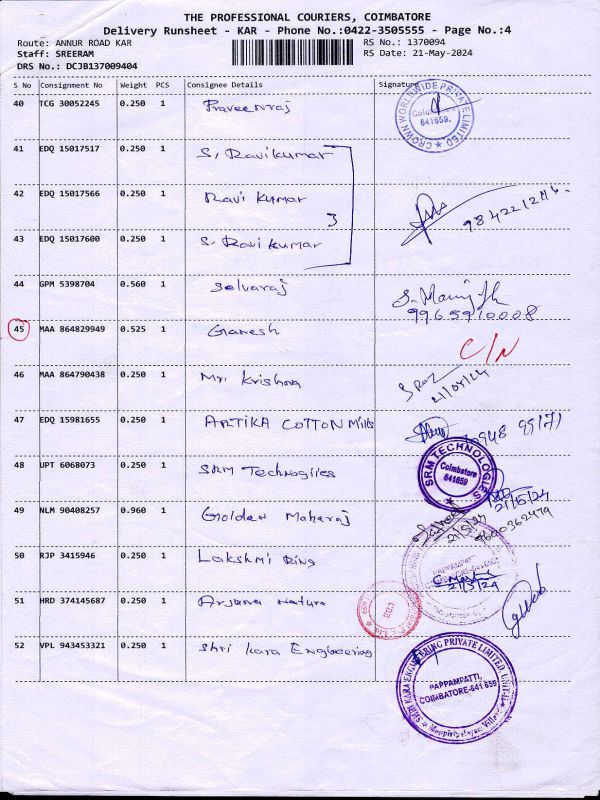 THE PROFESSIONAL COURIERS, COIMBATORE
Delivery Runsheet - KAR - Phone No.:0422-3505555 - Page No.:4
Route: ANNUR ROAD KAR RS No.: 1370094
Staff: SREERAM RS Date: 21-May-2024
DRS No.: DCJB137009404
S No Consignment No Weight PCS Consignee Details Signature
40 TCG 30052245 0.250 1 Praveenraj
CROWN WORLDWIDE PRIVATE LIMITED
641659.
41 EDQ 15017517 0.250 1 S. Ravikumar
42 EDQ 15017566 0.250 1 Ravi Kumar
3
43 EDQ 15017600 0.250 1 S. Ravikumar
44 GPM 5398704 0.560 1 Selvaraj
9965910008
45 MAA 864829949 0.525 1 Ganesh C/N
46 MAA 864790438 0.250 1 Mr. Krishna
21/05/24
47 EDQ 15981655 0.250 1 ARTIKA COTTON Mills
48 UPT 6068073 0.250 1 SRM Technoglies
SRM TECHNOLOGIES
Coimbatore
641659
21/5/24
49 NLM 90408257 0.960 1 Golden Maharaj
21/5/24
50 RJP 3415946 0.250 1 Lakshmi Ring
PAPPAMPATTI
21/5/24
51 HRD 374145687 0.250 1 Arjuna Natura
52 VPL 943453321 0.250 1 Shri Kara Engineering
SHRI KARA ENGINEERING PRIVATE LIMITED UNIT
PAPPAMPATTI,
COIMBATORE-641 659